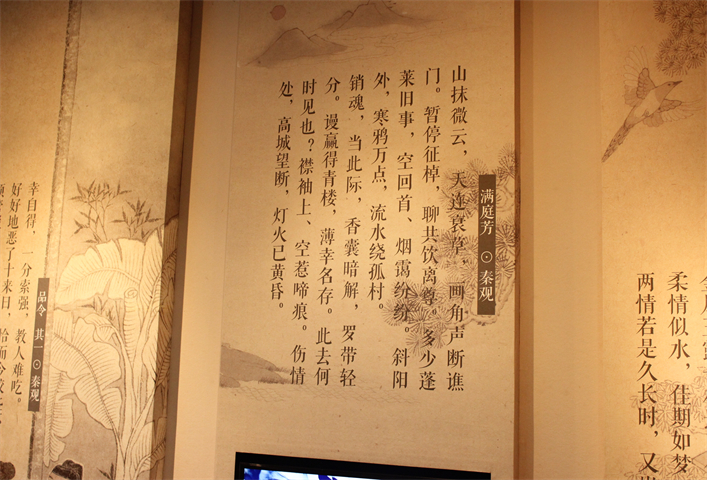 满庭芳 ⊙ 秦观
山抹微云，天连衰草，画角声断谯
门。暂停征棹，聊共饮离尊。多少蓬
莱旧事，空回首、烟霭纷纷。斜阳
外，寒鸦万点，流水绕孤村。
销魂，当此际，香囊暗解，罗带轻
分。谩赢得青楼，薄幸名存。此去何
时见也？襟袖上、空惹啼痕。伤情
处，高城望断，灯火已黄昏。
柔情似水，佳期如梦
两情若是久长时，又
品令 其一 ⊙ 秦观
幸自得，一分索强，教人难吃。
好好地恶了十来日，恰而今较